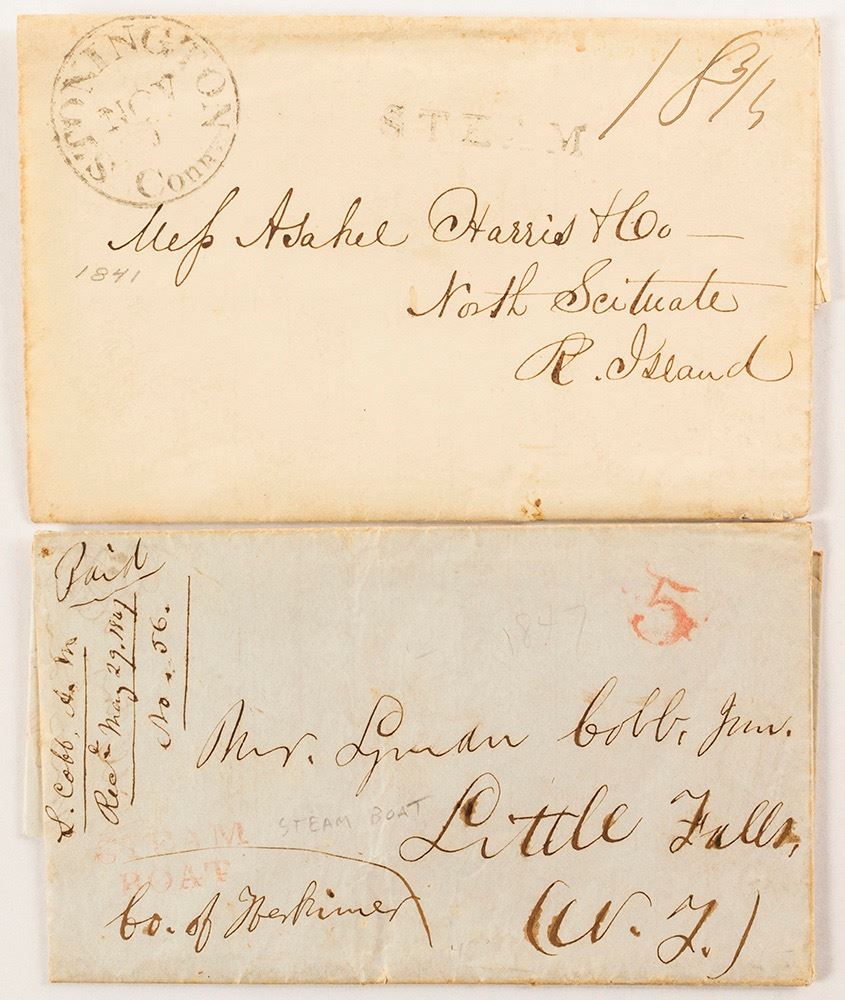 STONINGTON
NOV
Conn
STEAM
18 3/4
Mess Asahel Harris & Co —
1841
North Scituate
R. Island
Paid
L. Cobb, A. M
Recd May 29, 1847
No. 56.
5
1847
Mr. Lyman Cobb, Jun.
STEAM BOAT
Little Falls,
STEAM
BOAT
Co. of Herkimer
(N. Y.)